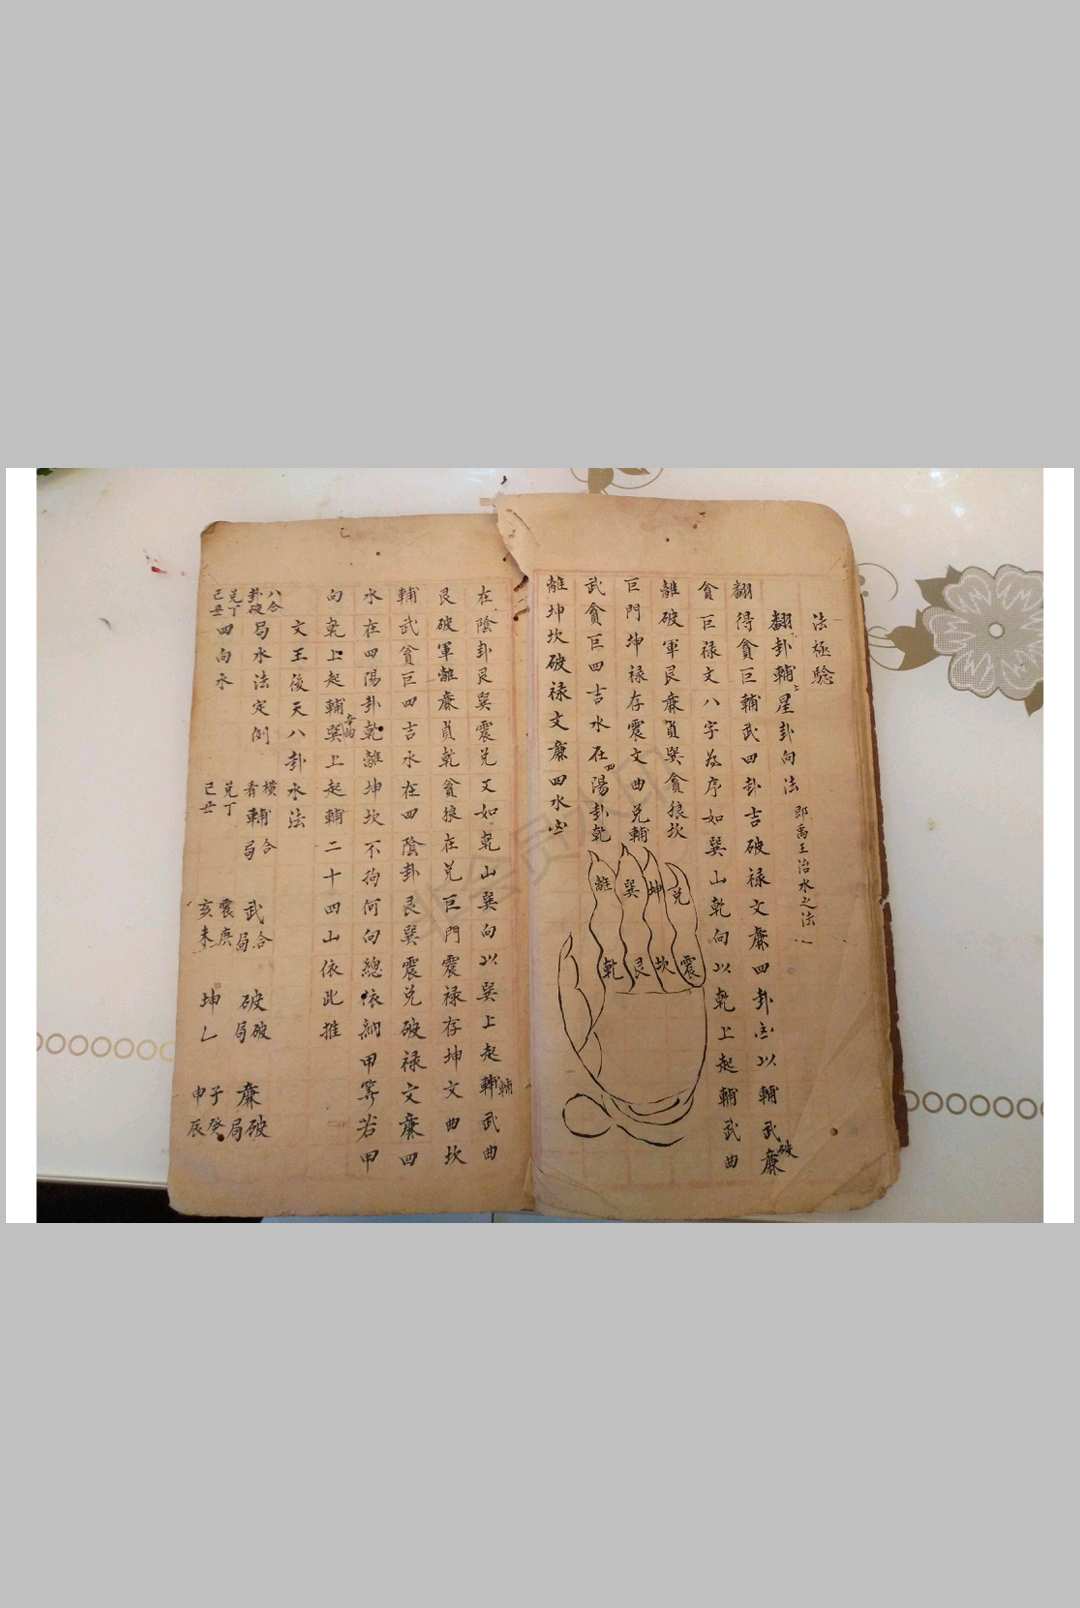 法極驗
翻卦輔星卦向法 即禹王治水之法
翻得貪巨輔武四卦吉破禄文廉四卦凶以輔武破廉
貪巨禄文八字為序如巽山乾向以乾上起輔武曲
離破軍艮廉貞巽貪狼坎
巨門坤禄存震文曲兌輔
武貪巨四吉水在四陽卦乾
離坤坎破禄文廉四水凶
離 巽 坤 兌
乾 艮 坎 震
在陰卦艮巽震兌又如乾山巽向以巽上起輔武曲
艮破軍離廉貞乾貪狼在兌巨門震禄存坤文曲坎
輔武貪巨四吉水在四陰卦艮巽震兌破禄文廉四
水在四陽卦乾離坤坎不拘何向總依納甲筭若甲
向乾上起輔辛向巽上起輔二十四山依此推
文王後天八卦水法
八合卦破局水法定例 横合看輔局 武合局 破破局 廉破局
兌丁己丑四向水 兌丁己丑 震庚亥未 坤乙 子癸申辰